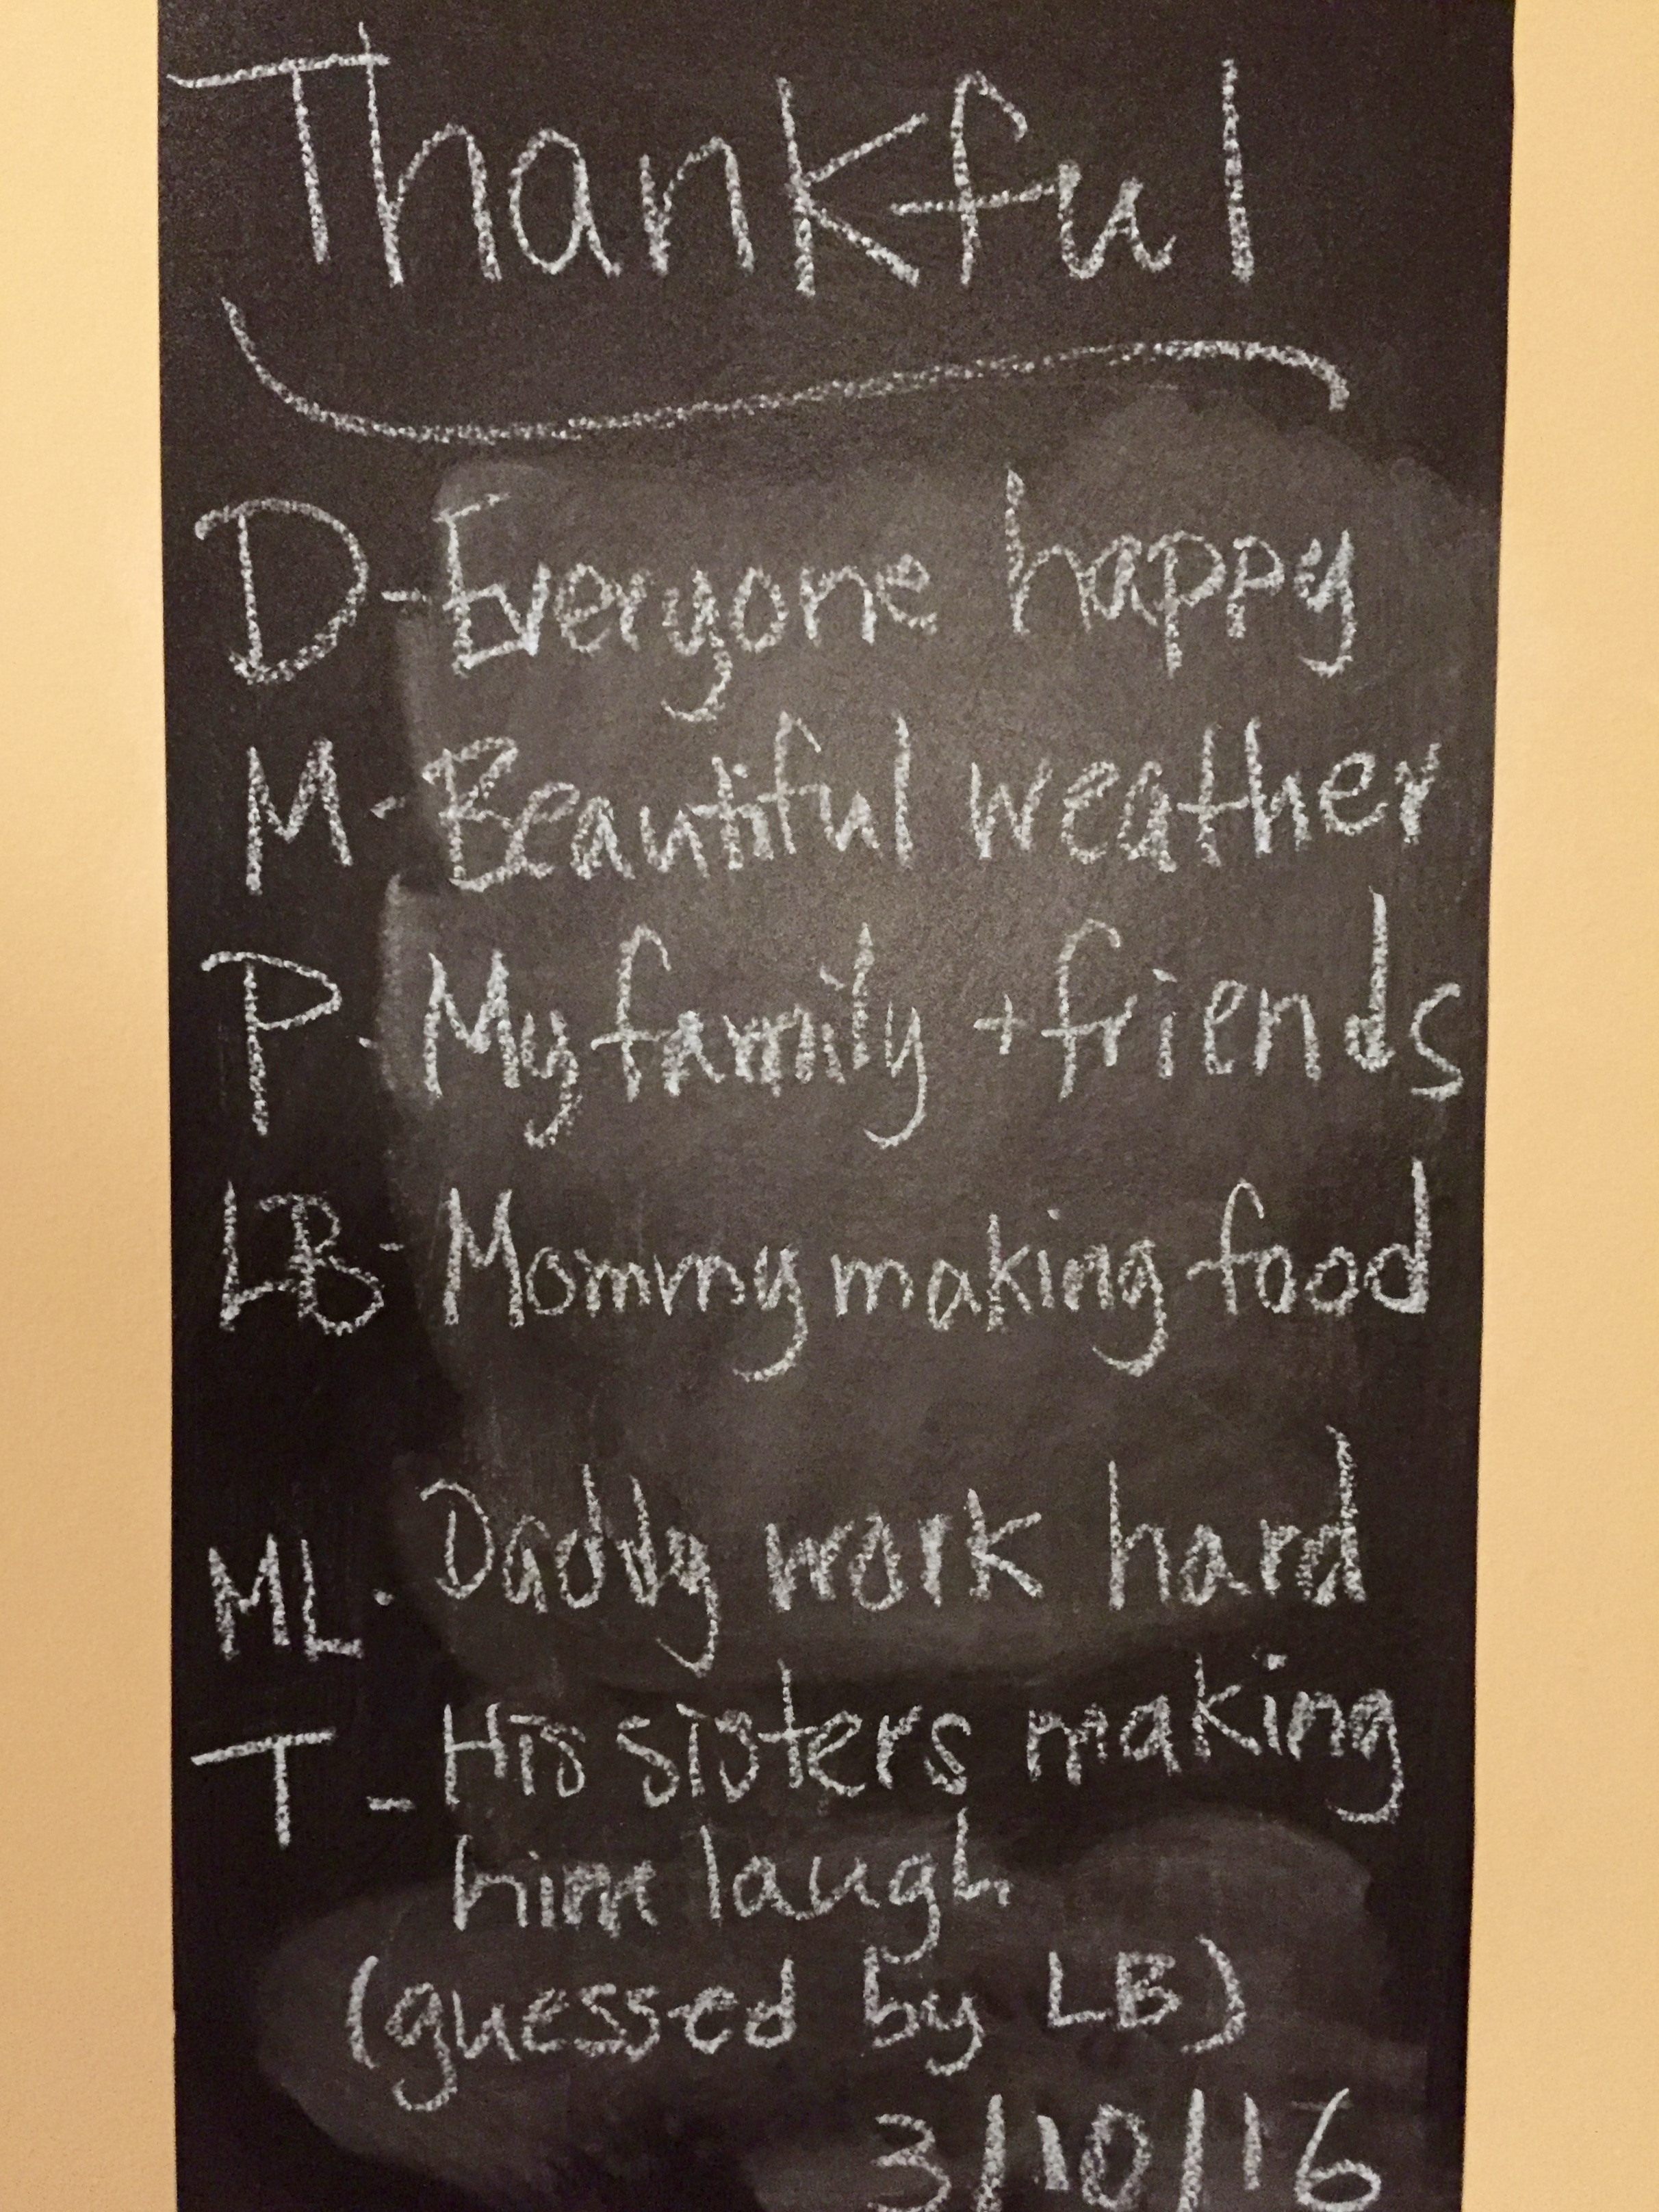 Thankful
D-Everyone happy
M-Beautiful weather
P-My family + friends
LB-Mommy making food
ML-Daddy work hard
T-His sisters making
him laugh
(guessed by LB)
3/10/16